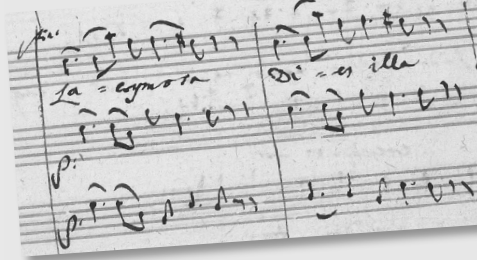 La = crymosa Di = es illa
p:
p: